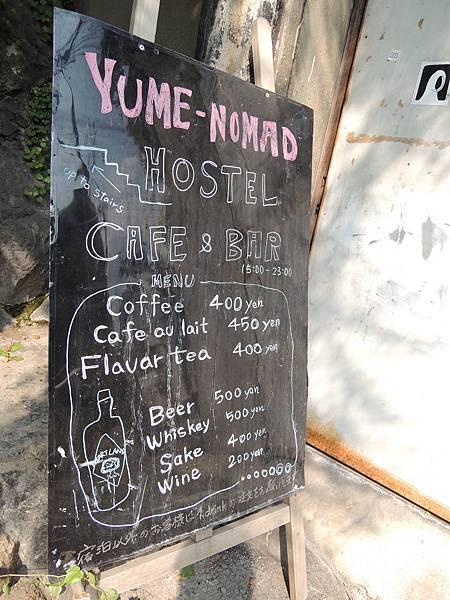 YUME-NOMAD
HOSTEL
up to stairs
CAFE & BAR
15:00-23:00
MENU
Coffee 400 yen
Cafe au lait 450 yen
Flavar tea 400 yen
Beer 500 yen
Whiskey 500 yen
Sake 400 yen
Wine 200 yen
宿泊以外のお客様は1drinkの注文をお願いします